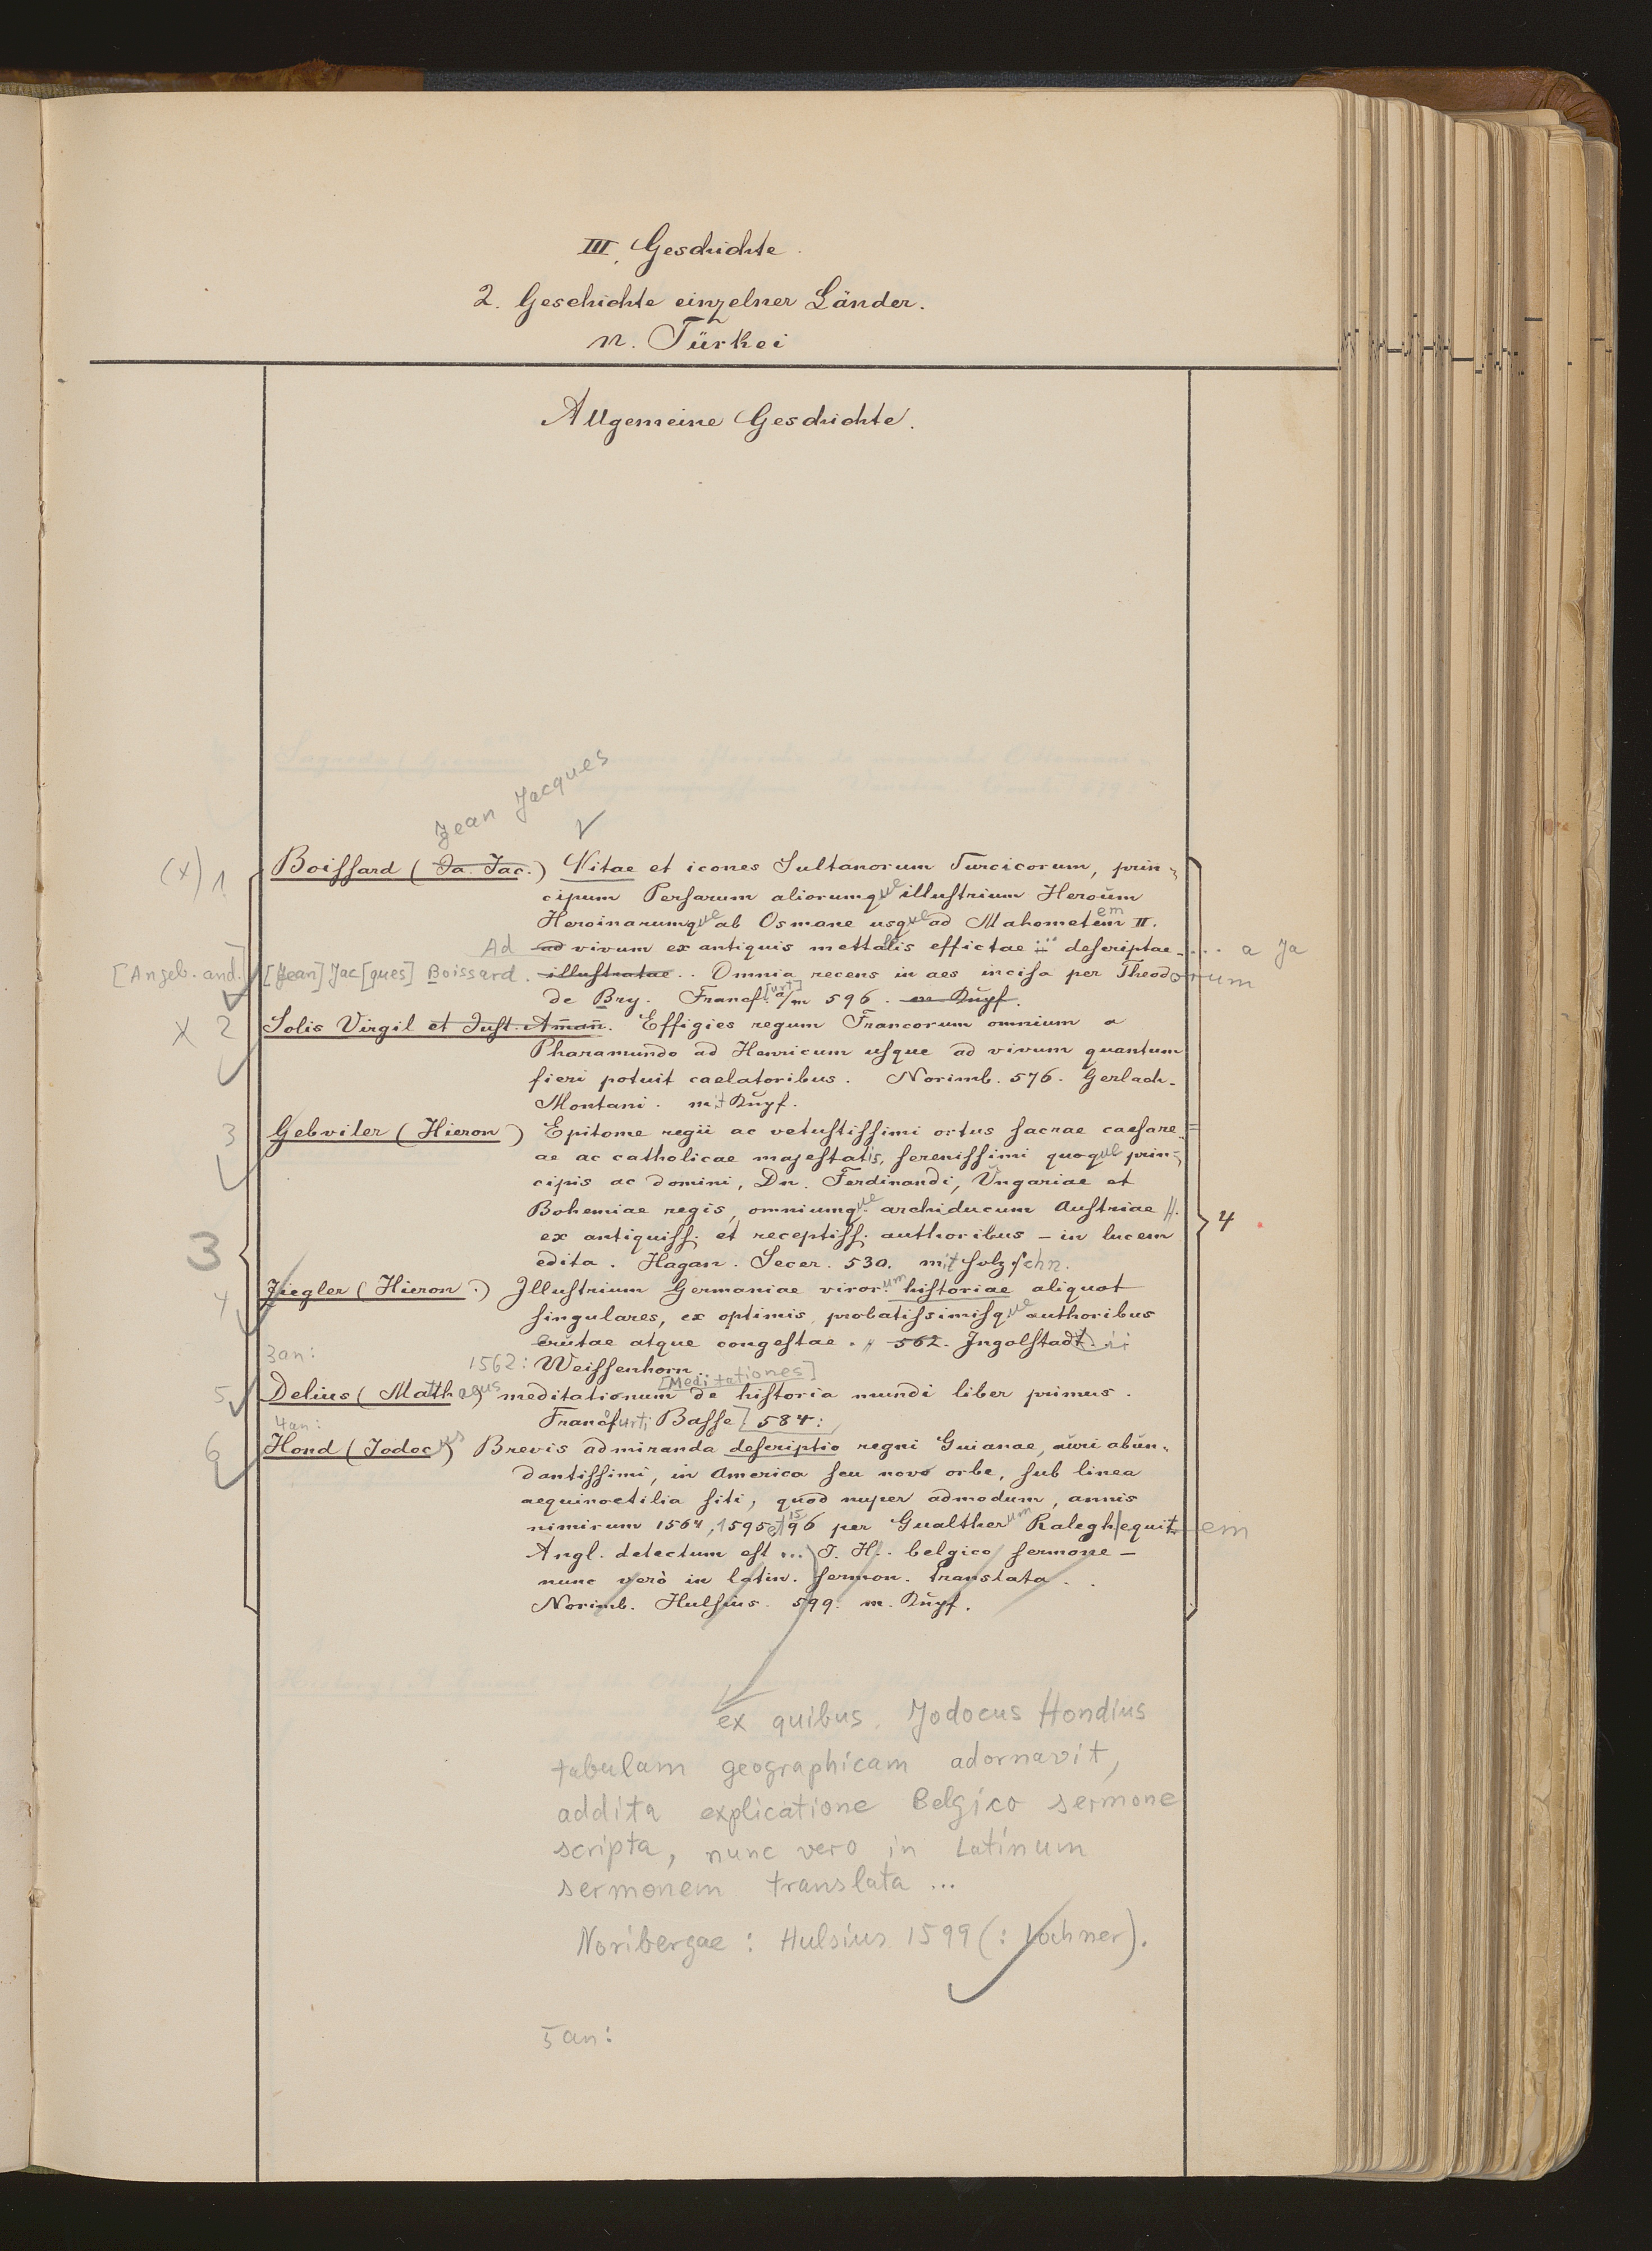 III. Geschichte.
2. Geschichte einzelner Länder.
n. Türkei
Allgemeine Geschichte.
Jean Jacques
(x) 1. Boissard (Ja. Jac.) Vitae et icones Sultanorum Turcicorum, prin-
cipum Persarum aliorumque illustrium Heroum
Heroinarumque ab Osmane usque ad Mahometem II.
Ad ad vivum ex antiquis mettalis effictae descriptae ... a Ja
[Angeb. and.] [Jean] Jac[ques] Boissard. illustratae.. Omnia recens in aes incisa per Theodorum
de Bry. Francf.[urt] a/m 596. m Kupf.
x 2 Solis Virgil et Just. Aman. Effigies regum Francorum omnium a
Pharamundo ad Henricum usque ad vivum quantum
fieri potuit caelatoribus. Norimb. 576. Gerlach.
Montani. mit Kupf.
3 Gebviler (Hieron) Epitome regii ac vetustissimi ortus sacrae caesare-
ae ac catholicae majestatis, serenissimi quoque prin-
cipis ac domini, Dn. Ferdinandi, Ungariae et
Bohemiae regis, omniumque archiducum Austriae
ex antiquiss. et receptiss. authoribus – in lucem
edita. Hagan. Secer. 530. mit Holzschn.
3
4
4 Ziegler (Hieron.) Illustrium Germaniae virorum historiae aliquot
singulares, ex optimis, probatissimisque authoribus
erutae atque congestae. 562. Ingolstadt
3an:
1562: Weissenhorn.
[Meditationes]
5 Delius (Matthaeus) meditationum de historia mundi liber primus.
Francfurti Basse] 584:
4an:
6 Hond (Jodocus) Brevis admiranda descriptio regni Guianae, auri abun-
dantissimi, in America seu novo orbe, sub linea
aequinoctilia siti, quod nuper admodum, annis
nimirum 1564, 1595 et 1596 per Gualtherum Ralegh equitem
Angl. detectum est ... J. H. belgico sermone –
nunc verò in latin. sermon. translata.
Norimb. Hulsius. 599. m. Kupf.
ex quibus Jodocus Hondius
tabulam geographicam adornavit,
addita explicatione Belgico sermone
scripta, nunc vero in Latinum
sermonem translata ...
Noribergae: Hulsius 1599 (: Lochner).
5an: